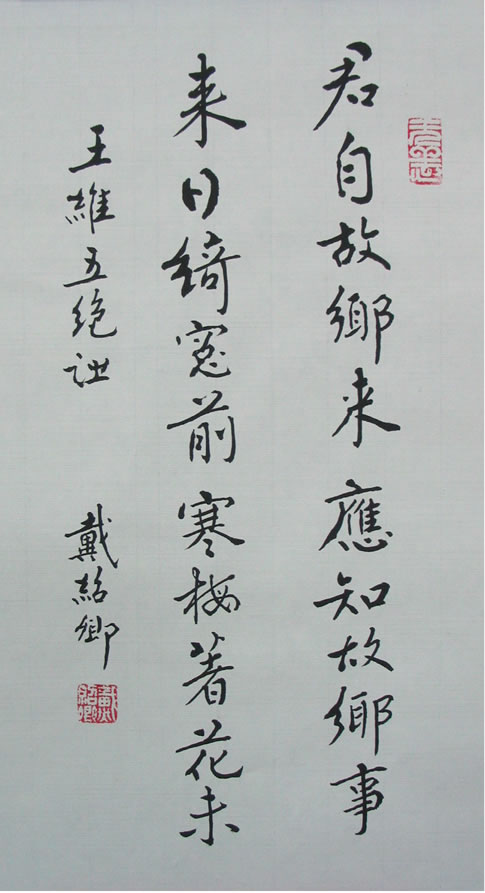 君自故鄉来應知故鄉事
来日綺窓前寒梅著花未
王維五絶詩 戴紹卿